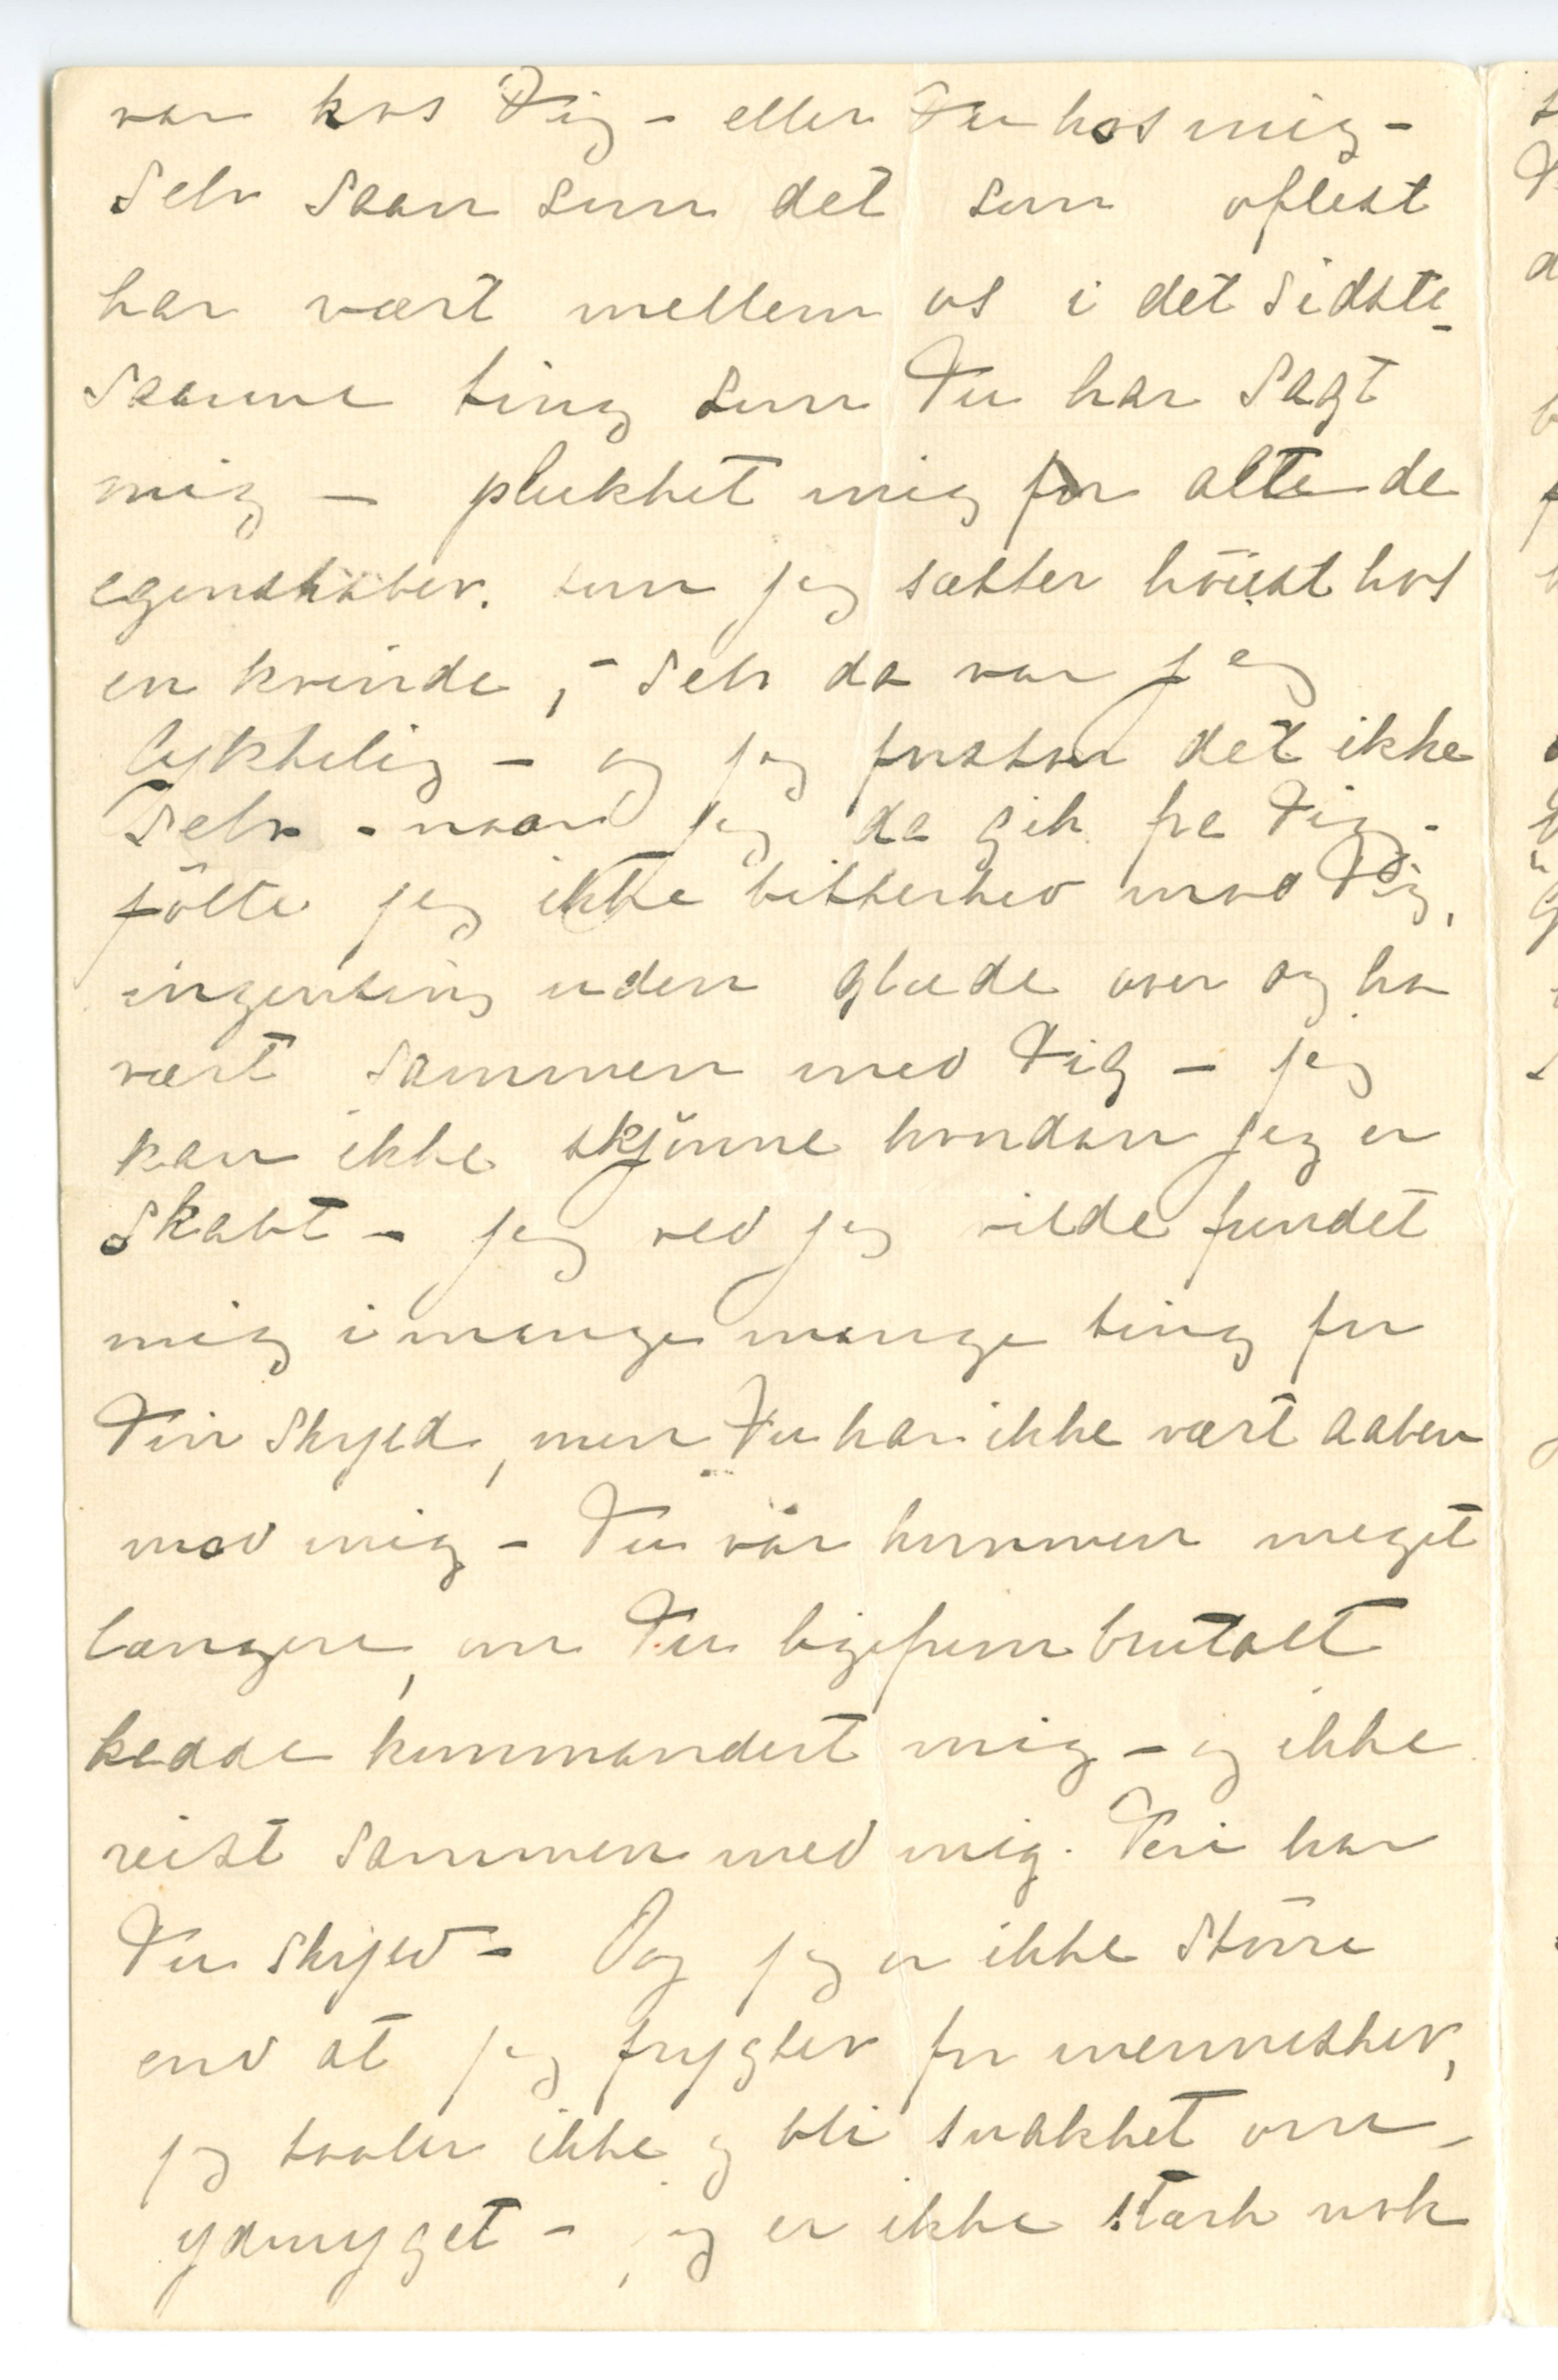 var hos Dig – eller Du hos mig –
selv saan som det som oftest
har vært mellem os i det sidste –
saanne ting som Du har sagt
mig – plukket mig for alle de
egenskaber. som jeg sætter höiest hos
en kvinde, – selv da var jeg
lykkelig – og jeg forstod det ikke
selv – naar jeg da gik fra Dig –
fölte jeg ikke bitterhed mod Dig,
ingenting uden glæde over og ha
vært sammen med Dig – jeg
kan ikke skjönne hvordan jeg er
skabt – jeg ved jeg vilde fundet
mig i mange mange ting for
Din skyld, men Du har ikke vært aaben
mod mig – Du var kommen meget
længere, om Du ligefrem brutalt
hadde kommandert mig – og ikke
reist sammen med mig. Deri har
Du skyld – Og jeg er ikke större
end at jeg frygter for mennesker,
jeg taaler ikke og bli snakket om –
ydmyget – jeg er ikke stærk nok